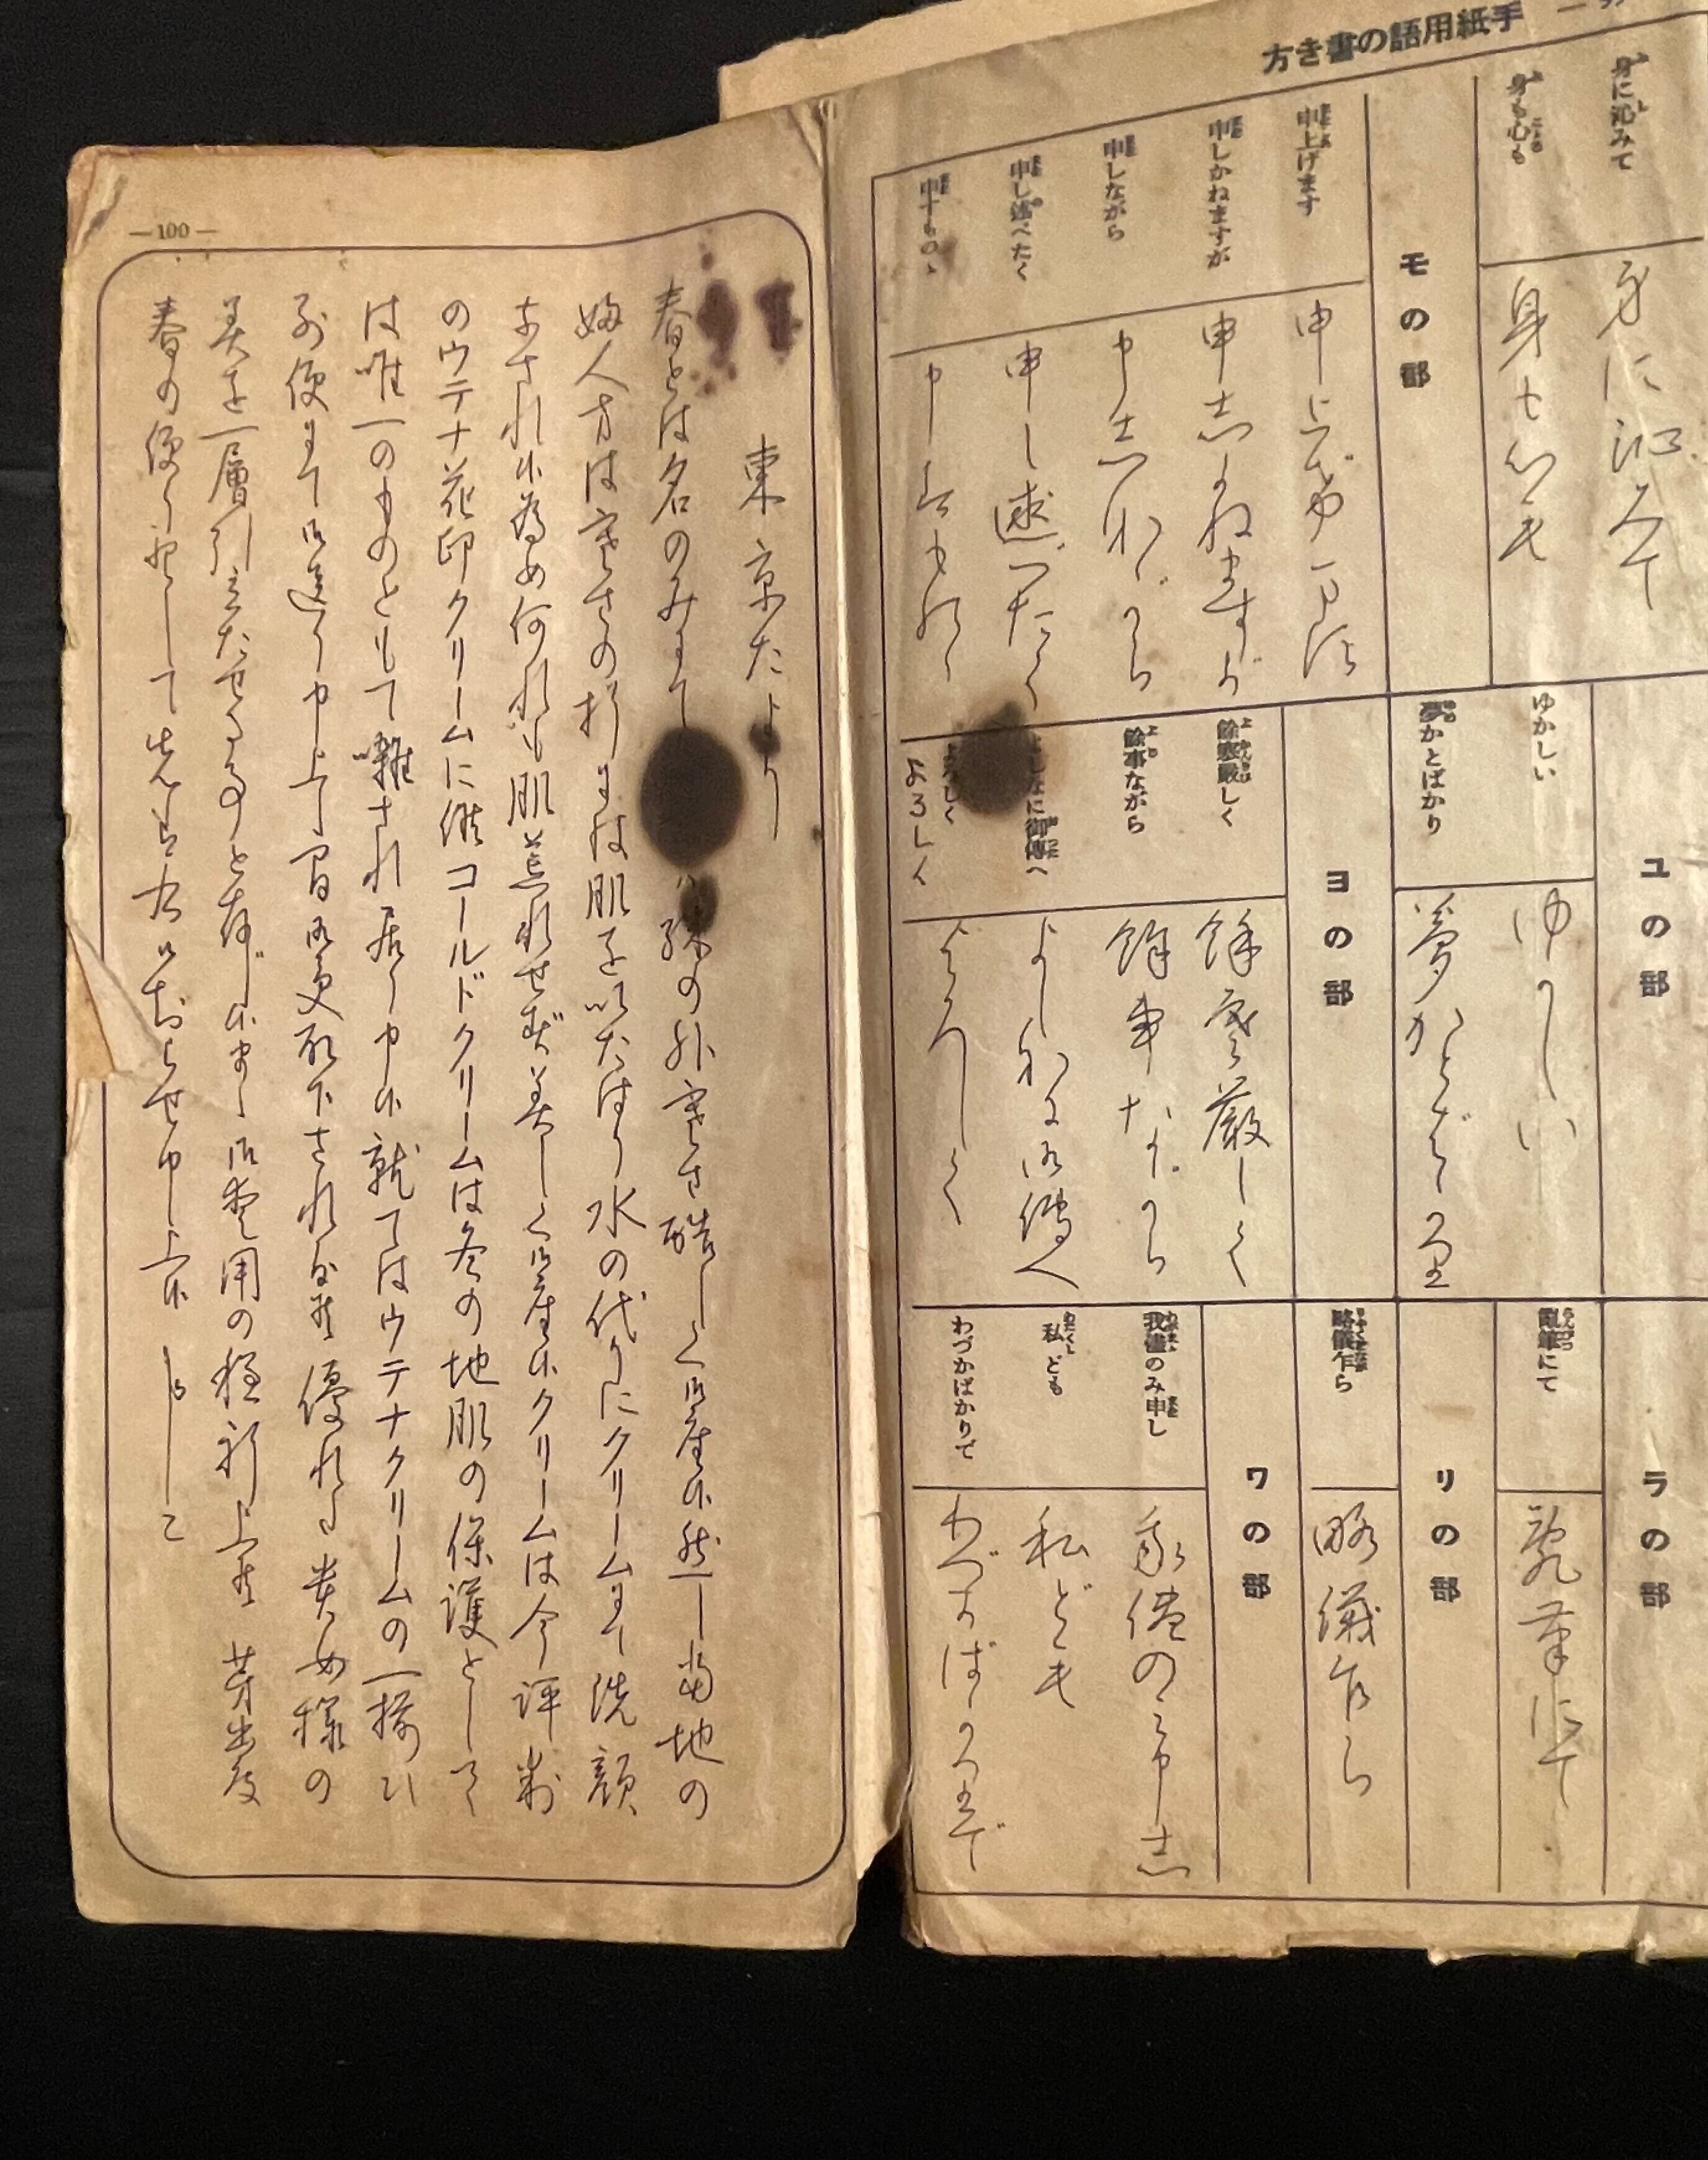 手紙用語の書き方
身に沁みて
身に沁みて
身も心も
身も心も
モの部
申上げます
申上げます
申しかねますが
申しかねますが
申しながら
申しながら
申し述べたく
申し述べたく
申すもの丶
ユの部
ゆかしい
ゆかしい
夢かとばかり
夢かとばかり
ヨの部
餘寒嚴しく
餘寒嚴しく
餘事ながら
餘事ながら
よしなに御傳へ
よしなに御傳へ
よろしく
よろしく
よろしく
ラの部
亂筆にて
亂筆にて
リの部
略儀乍ら
略儀乍ら
ワの部
我儘のみ申し
我儘のみ申し
私ども
私ども
わづかばかりで
わづかばかりで
—100—
東京たより
春とは名のみにて 殊の外寒さ酷しく御座候然し當地の
婦人方は寒さの折には肌を以たはり水の代りにクリームにて洗顔
なされ候為め何れも肌荒れせず美しく御座候クリームは今評判
のウテナ花印クリームに候コールドクリームは冬の地肌の保護として
は唯一のものとして囃され居り申候就てはウテナクリームの一揃ひ
別便にて御送り申上げ間御受取下され度候 優れし貴女様の
美を一層引立たせるものと存じ候まゝ御愛用の程祈上候 芽出度
春の便りとして先は右御知らせ申し上候 かしこ